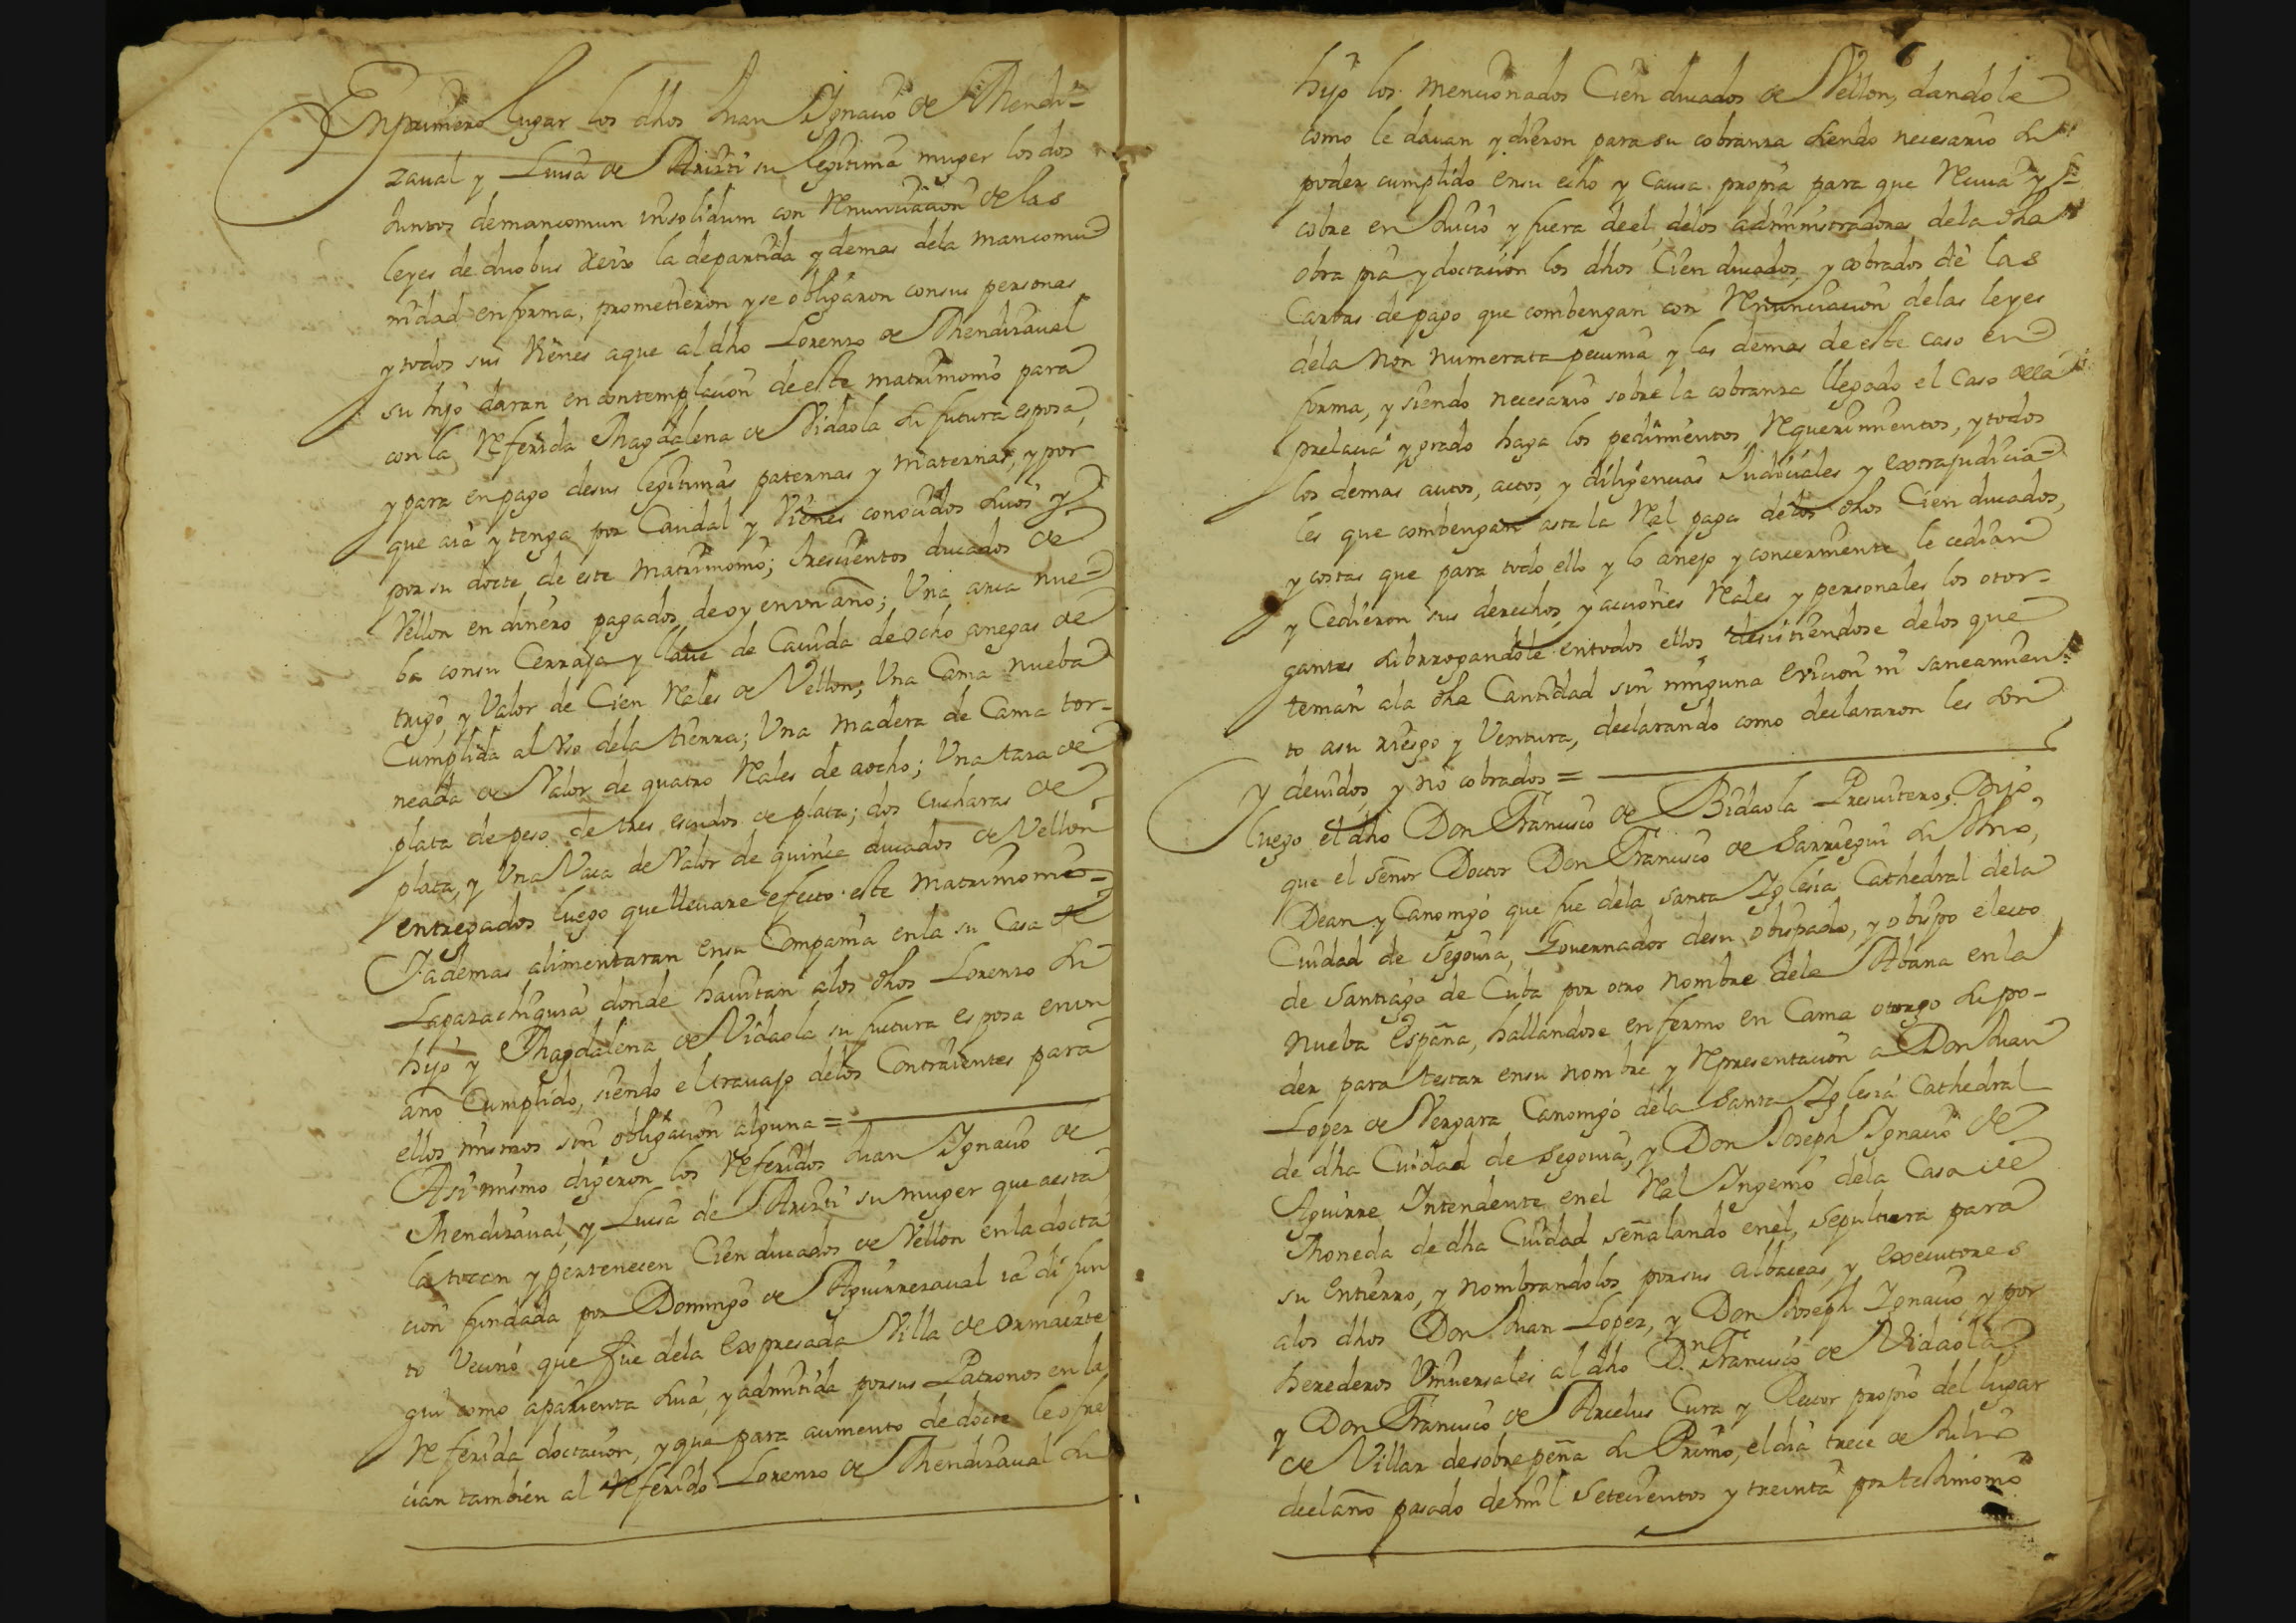 En primero lugar los dhos Juan Ygnacio de Mendi-
zaual y Luisa de Aristi su legitima muger los dos
Juntos demancomun insolidum con Renunciacion de las
leyes de duobus Reis la departida y demas dela mancomu
nidad en forma, prometieron y se obligaron consus personas
y todos sus Vienes aque al dho Lorenzo de Mendizaual
su hijo daran en contemplacion de este matrimonio para
con la Referida Magdalena de Vidaola su futura esposa,
y para en pago desus legitimas paternas y maternas, y por
que aia y tenga por Caudal y Vienes conocidos suios y
por su docte de este matrimonio; trescientos ducados de
Vellon en dinero pagados de oy en vn año; Vna arca nue-
ba consu Cerraja y llaue de Cauida de ocho anegas de
trigo, y Valor de Cien Rales de Vellon; Vna Cama nueba
Cumplida al Vso dela tierra; Vna madera de Cama tor-
neada de Valor de quatro Rales de aocho; Vna taza de
plata de peso de tres escudos de plata; dos Cucharas de
plata, y Vna Vaca de Valor de quince ducados de Vellon
entregados luego que lleuare efecto este matrimonio-
Yademas alimentaran ensu Compañia enla su Casa de
Laparachigura donde hauitan alos dhos Lorenzo su
hijo y Magdalena de Vidaola su futura esposa en vn
año Cumplido, siendo el trauajo delos Contraientes para
ellos mismos sin obligacion alguna =
Asi mismo digeron los Referidos Juan Ygnacio de
Mendizaual, y Luisa de Aristi su muger que aesta
la tocan y pertenecen Cien ducados de Vellon enla docta
cion fundada por Domingo de Aguirrezaual ia difun
to Vecino que fue dela expresada Villa de ormaizte
gui como aparienta suia, y admitida porsus Patronos en la
Referida doctacion, y que para aumento de docte le ofre
cian tambien al Referido Lorenzo de Mendizaual su
hijo los mencionados Cien ducados de Vellon, dandole
como le dauan y dieron para su cobranza siendo necesario su
poder cumplido ensu echo y Causa propia para que Reciua y
cobre en Juicio y fuera de el, delos administradores dela dha
obra pia y doctacion los dhos Cien ducados, y cobrados de las
Cartas de pago que combengan con Renunciacion delas leyes
dela non numerata pecunia y las demas de este caso en
forma, y siendo necesario sobre la cobranza llegado el Caso dela
prelacia y grado haga los pedimientos Requerimientos, y todos
los demas autos, actos, y diligencias Judiciales y extrajudicia-
les que combengan asta la Ral paga delos dhos Cien ducados,
y costas que para todo ello y lo anejo y concerniente le cedian
y Cedieron sus derechos, y acciones Rales y personales los otor-
gantes subrrogandole entodos ellos, desistiendose delos que
tenian ala dha Cantidad sin ninguna euicion ni saneamien-
to asu riesgo y Ventura, declarando como declararon les son
y deuidos, y no cobrados =
Luego el dho Don Francisco de Bidaola Presuitero, Dijo
que el señor Doctor Don Francisco de Sarriegui su thio,
Dean y Canonigo que fue dela Santa Yglesia Cathedral dela
Ciudad de Segouia, Gouernador desu obispado, y obispo electo
de Santiago de Cuba por otro nombre dela Abana enla
nueba españa, hallandose enfermo en Cama otorgo su po-
der para testar ensu nombre y Representacion a Don Juan
Lopez de Vergara Canonigo dela Santa Yglesia Cathedral
de dha Ciudad de Segouia, y Don Joseph Ygnacio de
Aguirre Intendente enel Ral Ingenio dela Casa de
Moneda de dha Ciudad señalando enel, Sepultura para
su entierro, y nombrandolos porsus albaceas, y executores
alos dhos Don Juan Lopez, y Don Joseph Ygnacio, y por
herederos Vniuersales al dho Dn. Francisco de Vidaola
y Don Francisco de Arcelus Cura y Rector propio del lugar
de Villar desobrepeña su Primo, el dia trece de Julio
del año pasado de mil setecientos y treinta por testimonio